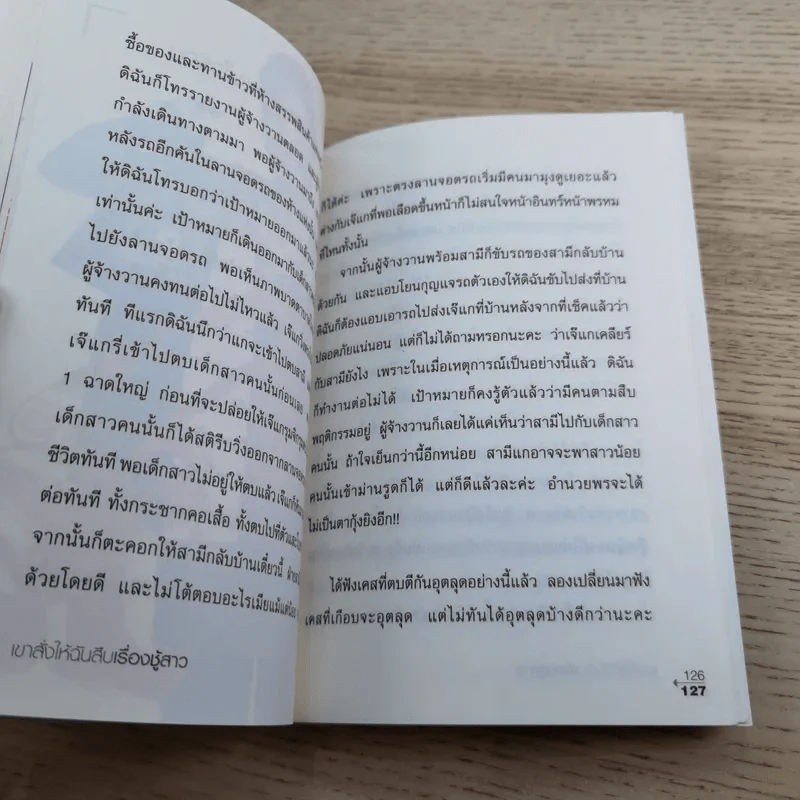 ซื้อของและทานข้าวที่ห้างสรรพสินค้า
ดิฉันก็โทรรายงานผู้จ้างวานตลอด
กำลังเดินทางตามมา พอผู้จ้างวานมาถึง
หลังรถอีกคันในลานจอดรถของห้าง
ให้ดิฉันโทรบอกว่าเป้าหมายออกมาแล้ว
เท่านั้นค่ะ เป้าหมายก็เดินออกมากับเด็กสาว
ไปยังลานจอดรถ พอเห็นภาพบาดตา
ผู้จ้างวานคงทนต่อไปไม่ไหวแล้ว เจ๊แก
ทันที ทีแรกดิฉันนึกว่าแกจะเข้าไปตบสามี
เจ๊แกรี่เข้าไปตบเด็กสาวคนนั้นก่อนเลย
1 ฉาดใหญ่ ก่อนที่จะปล่อยให้เจ๊แกรุม
เด็กสาวคนนั้นก็ได้สติรีบวิ่งออกจากลาน
ชีวิตทันที พอเด็กสาวไม่อยู่ให้ตบแล้ว เจ๊แกก็
ต่อทันที ทั้งกระชากคอเสื้อ ทั้งตบไปที่ตัว
จากนั้นก็ตะคอกให้สามีกลับบ้านเดี๋ยวนี้
ด้วยโดยดี และไม่โต้ตอบอะไรเมียแม้แต่น้อย
เขาสั่งให้ฉันสืบเรื่องชู้สาว
ก็ได้ค่ะ เพราะตรงลานจอดรถเริ่มมีคนมามุงดูเยอะแล้ว
ต่างกับเจ๊แกที่พอเลือดขึ้นหน้าก็ไม่สนใจหน้าอินทร์หน้าพรหม
ที่ไหนทั้งนั้น
จากนั้นผู้จ้างวานพร้อมสามีก็ขับรถของสามีกลับบ้าน
ด้วยกัน และแอบโยนกุญแจรถตัวเองให้ดิฉันขับไปส่งที่บ้าน
ดิฉันก็ต้องแอบเอารถไปส่งเจ๊แกที่บ้านหลังจากที่เช็คแล้วว่า
ปลอดภัยแน่นอน แต่ก็ไม่ได้ถามหรอกนะคะ ว่าเจ๊แกเคลียร์
กับสามียังไง เพราะในเมื่อเหตุการณ์เป็นอย่างนี้แล้ว ดิฉัน
ก็ทำงานต่อไม่ได้ เป้าหมายก็คงรู้ตัวแล้วว่ามีคนตามสืบ
พฤติกรรมอยู่ ผู้จ้างวานก็เลยได้แค่เห็นว่าสามีไปกับเด็กสาว
คนนั้น ถ้าใจเย็นกว่านี้อีกหน่อย สามีแกอาจจะพาสาวน้อย
คนนั้นเข้าม่านรูดก็ได้ แต่ก็ดีแล้วละค่ะ อำนวยพรจะได้
ไม่เป็นตากุ้งยิงอีก!!
ได้ฟังเคสที่ตบตีกันอุตลุดอย่างนี้แล้ว ลองเปลี่ยนมาฟัง
เคสที่เกือบจะอุตลุด แต่ไม่ทันได้อุตลุดบ้างดีกว่านะคะ
126
127